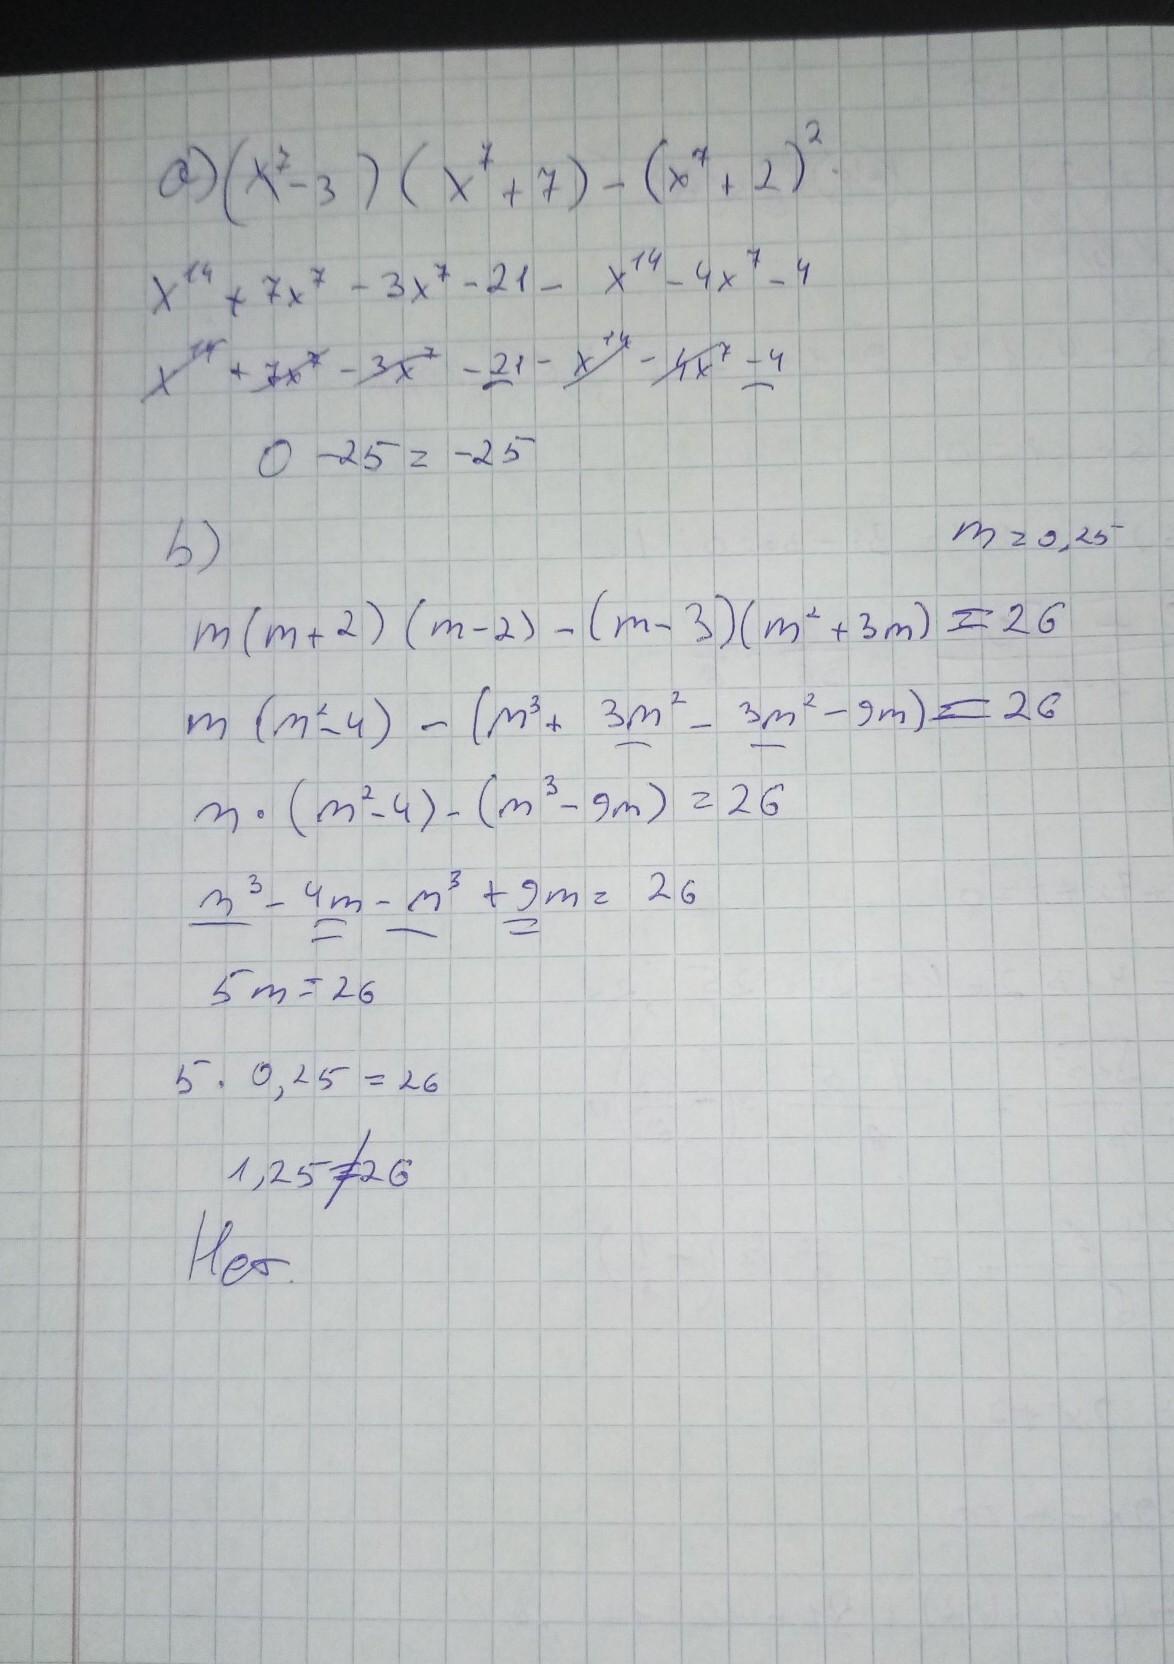 a) (x⁷-3) (x⁷+7) - (x⁷+2)²
x¹⁴ + 7x⁷ - 3x⁷ - 21 - x¹⁴ - 4x⁷ - 4
x¹⁴ + 7x⁷ - 3x⁷ - 21 - x¹⁴ - 4x⁷ - 4
0 - 25 = -25
b) m = 0,25
m(m+2) (m-2) - (m-3)(m²+3m) = 26
m (m²-4) - (m³ + 3m² - 3m² - 9m) = 26
m · (m²-4) - (m³ - 9m) = 26
m³ - 4m - m³ + 9m = 26
5m = 26
5 · 0,25 = 26
1,25 ≠ 26
Нет.